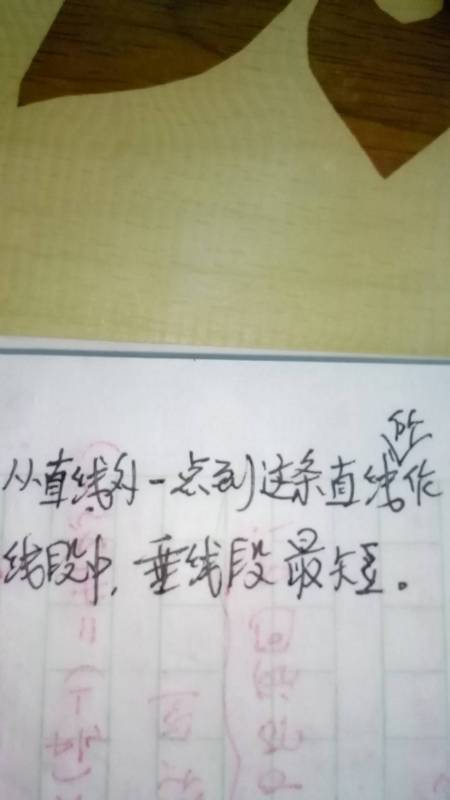 从直线外一点到这条直线所作
线段中,垂线段最短。